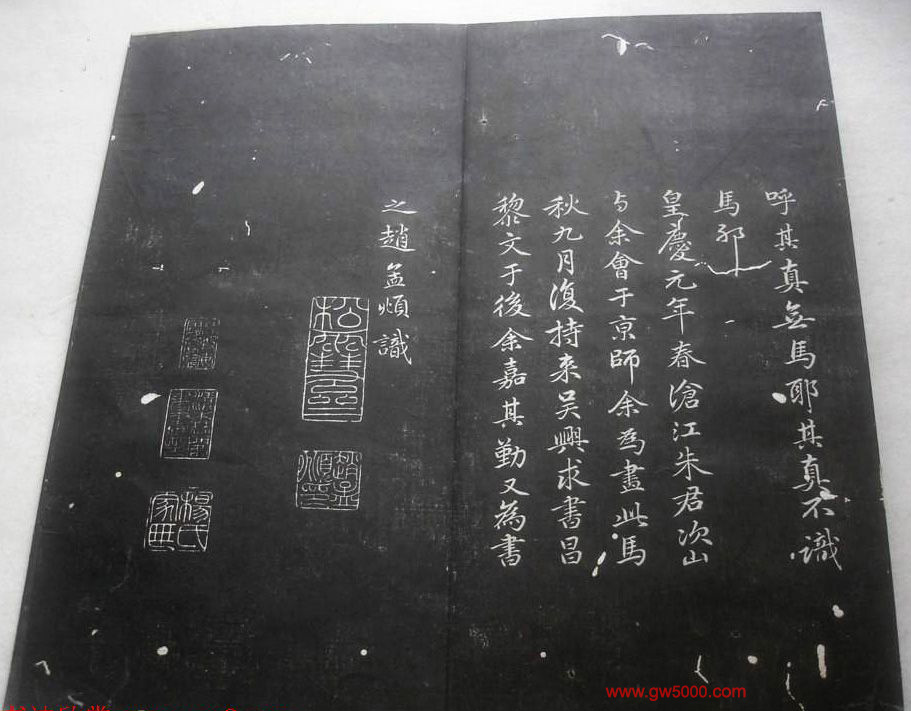 呼其真無馬耶其真不識
馬耶
皇慶元年春滄江朱君次山
与余會于京師余為畫此馬
秋九月復持来吴興求書昌
黎文于後余嘉其勤又為書
之趙孟頫識
松雪齋
趙孟頫印
楊氏家
www.gw5000.com